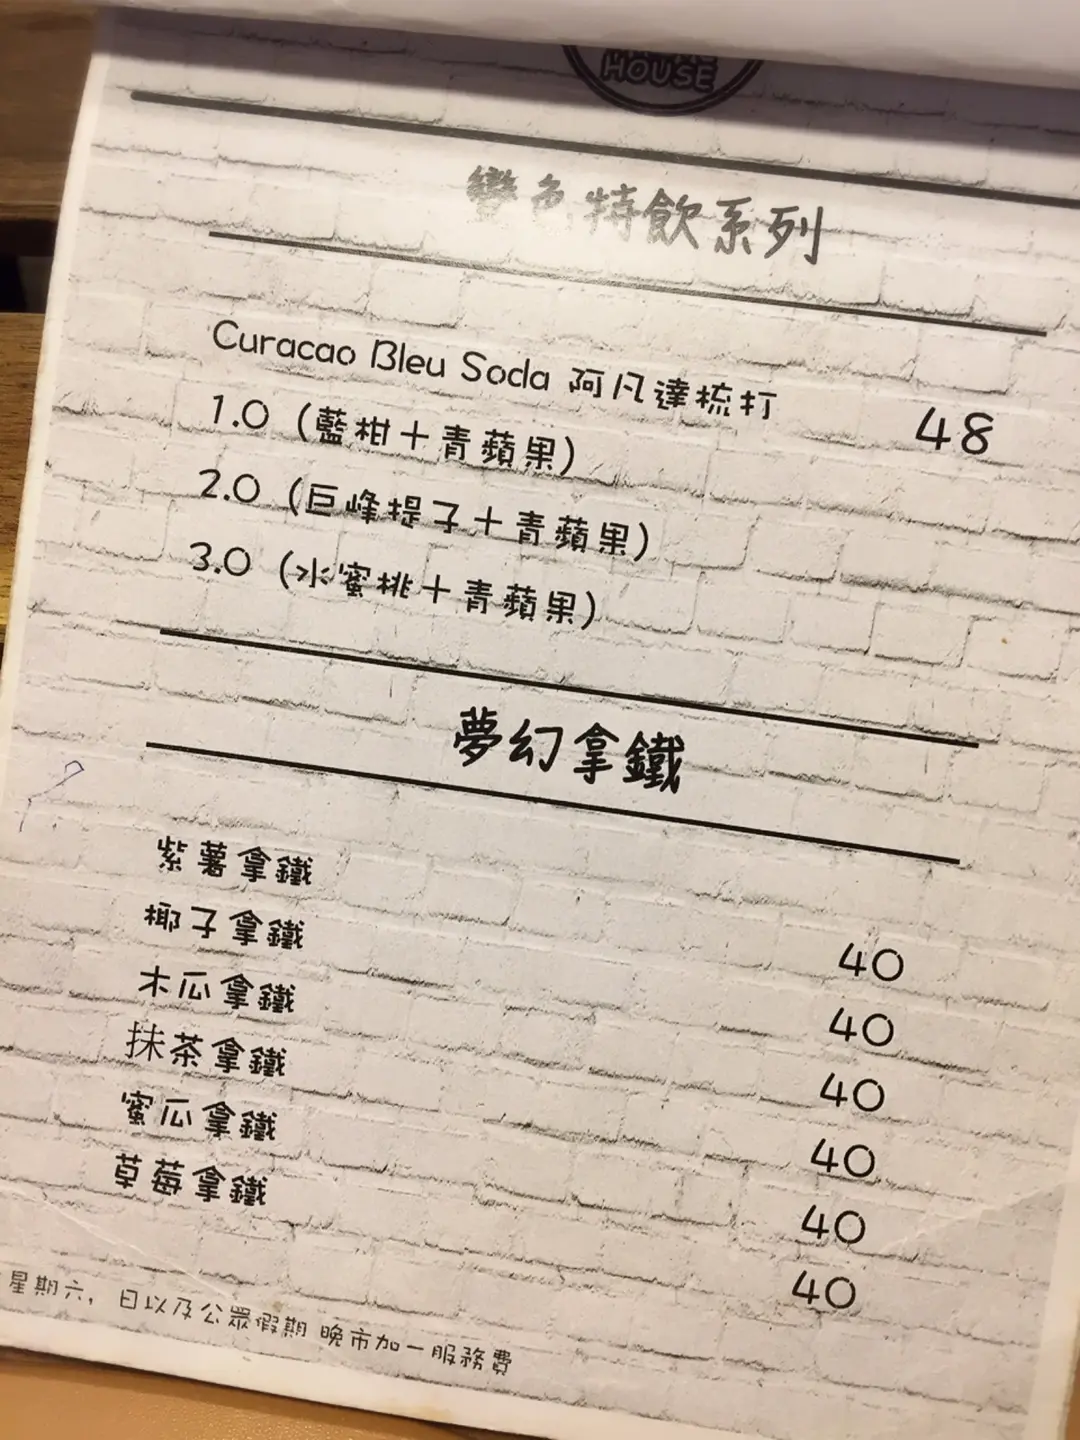 HOUSE
變色特飲系列
Curacao Bleu Soda 阿凡達梳打 48
1.0 (藍柑+青蘋果)
2.0 (巨峰提子+青蘋果)
3.0 (水蜜桃+青蘋果)
夢幻拿鐵
紫薯拿鐵 40
椰子拿鐵 40
木瓜拿鐵 40
抹茶拿鐵 40
蜜瓜拿鐵 40
草莓拿鐵 40
星期六, 日以及公眾假期 晚市加一服務費